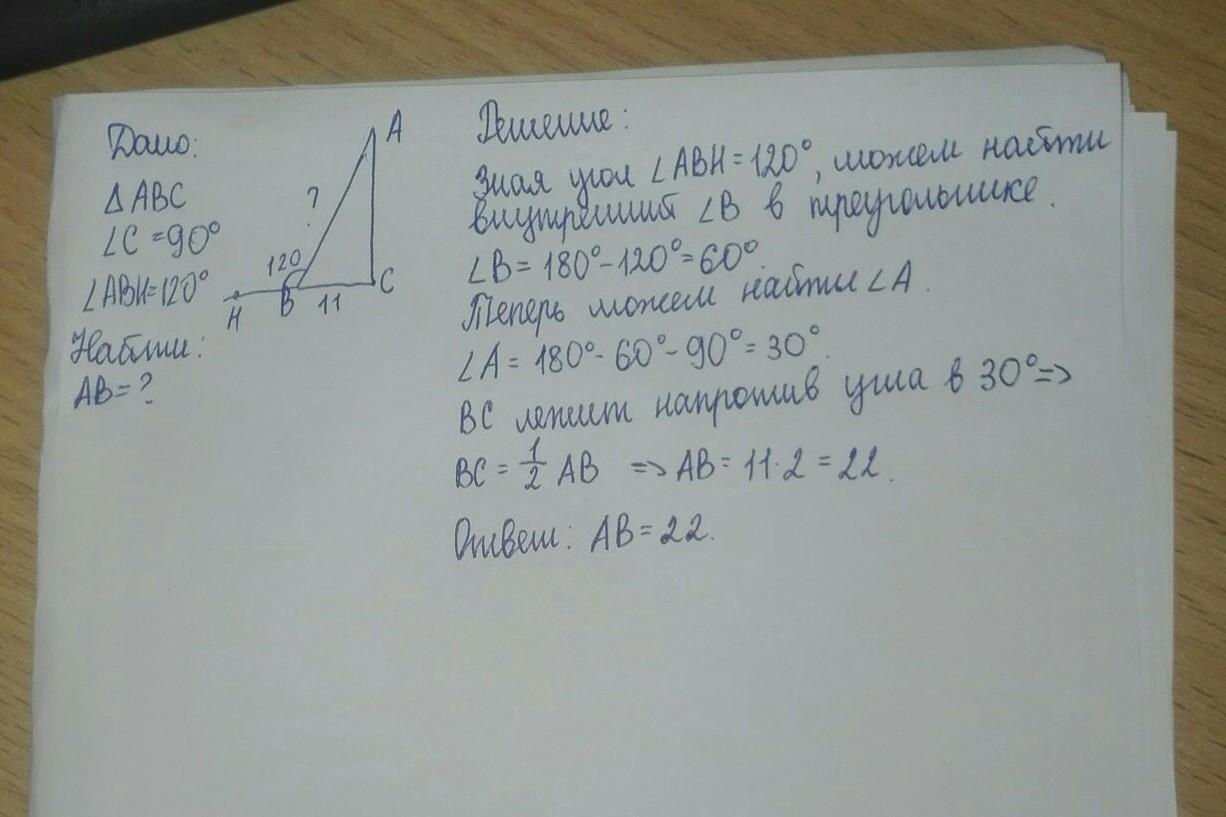 Дано:
△ABC
∠C = 90°
∠ABH = 120°
Найти:
AB = ?
A
?
120
C
H
B
11
Решение:
Зная угол ∠ABH = 120°, можем найти
внутренний ∠B в треугольнике.
∠B = 180° - 120° = 60°.
Теперь можем найти ∠A.
∠A = 180° - 60° - 90° = 30°.
BC лежит напротив угла в 30° =>
BC = 1/2 AB => AB = 11 · 2 = 22.
Ответ: AB = 22.